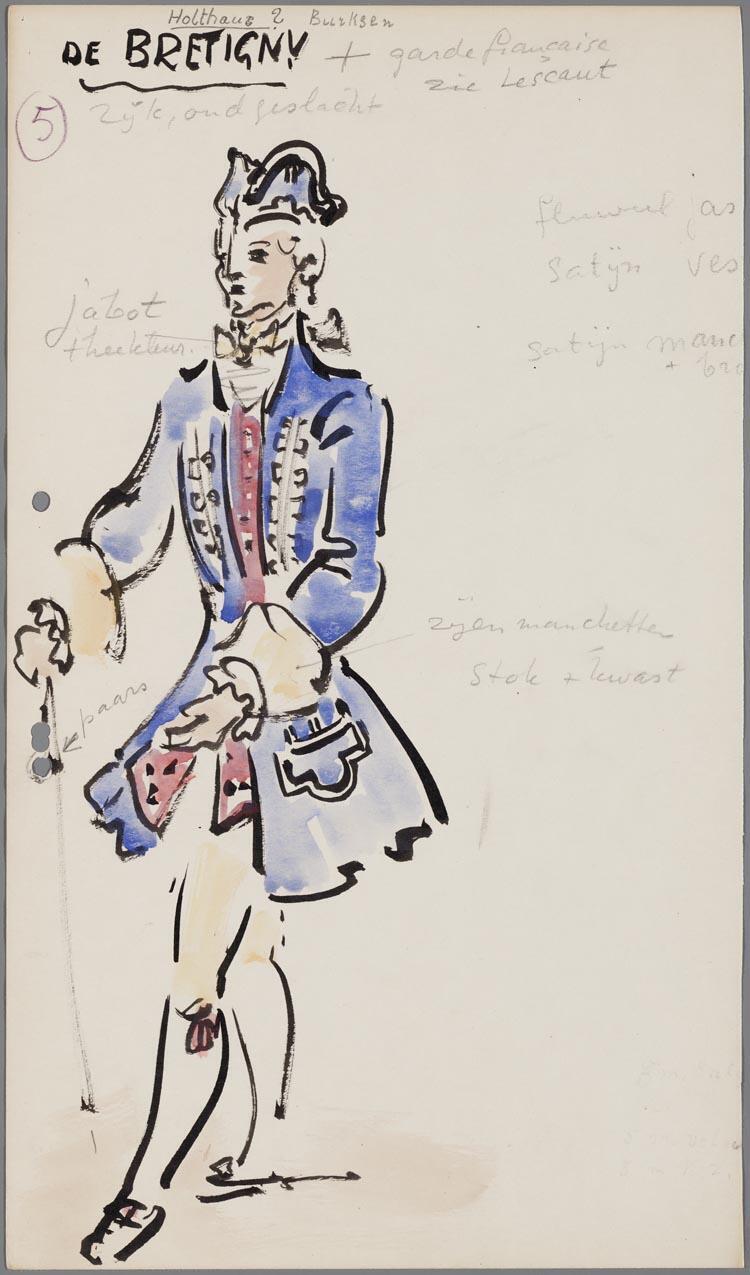 Holthaus 2 Burksen
DE BRETIGNY + garde française
zie Lescaut
5 Rijk, oud geslacht
fluweel jas
satijn ves
jabot
satijn manc
+ bro
zijden manchetten
stok + kwast
paars